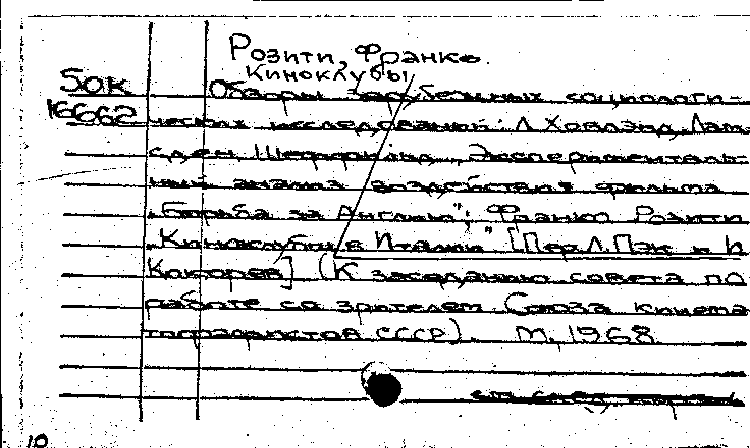 Розити, Франко.
Киноклубы
50К Обзоры зарубежных социологи-
16662 ческих исследований: Л. Ховлэнд, Лам
сден, Шеффилд. „Эксперименталь-
ный анализ воздействия фильма
„Борьба за Англию"; Франко Розити
„Киноклубы в Италии" [Пер. Л. Пэк и
Кокорев] (К заседанию совета по
работе со зрителем Союза кинема
тографистов СССР). М. 1968
см. след.
10